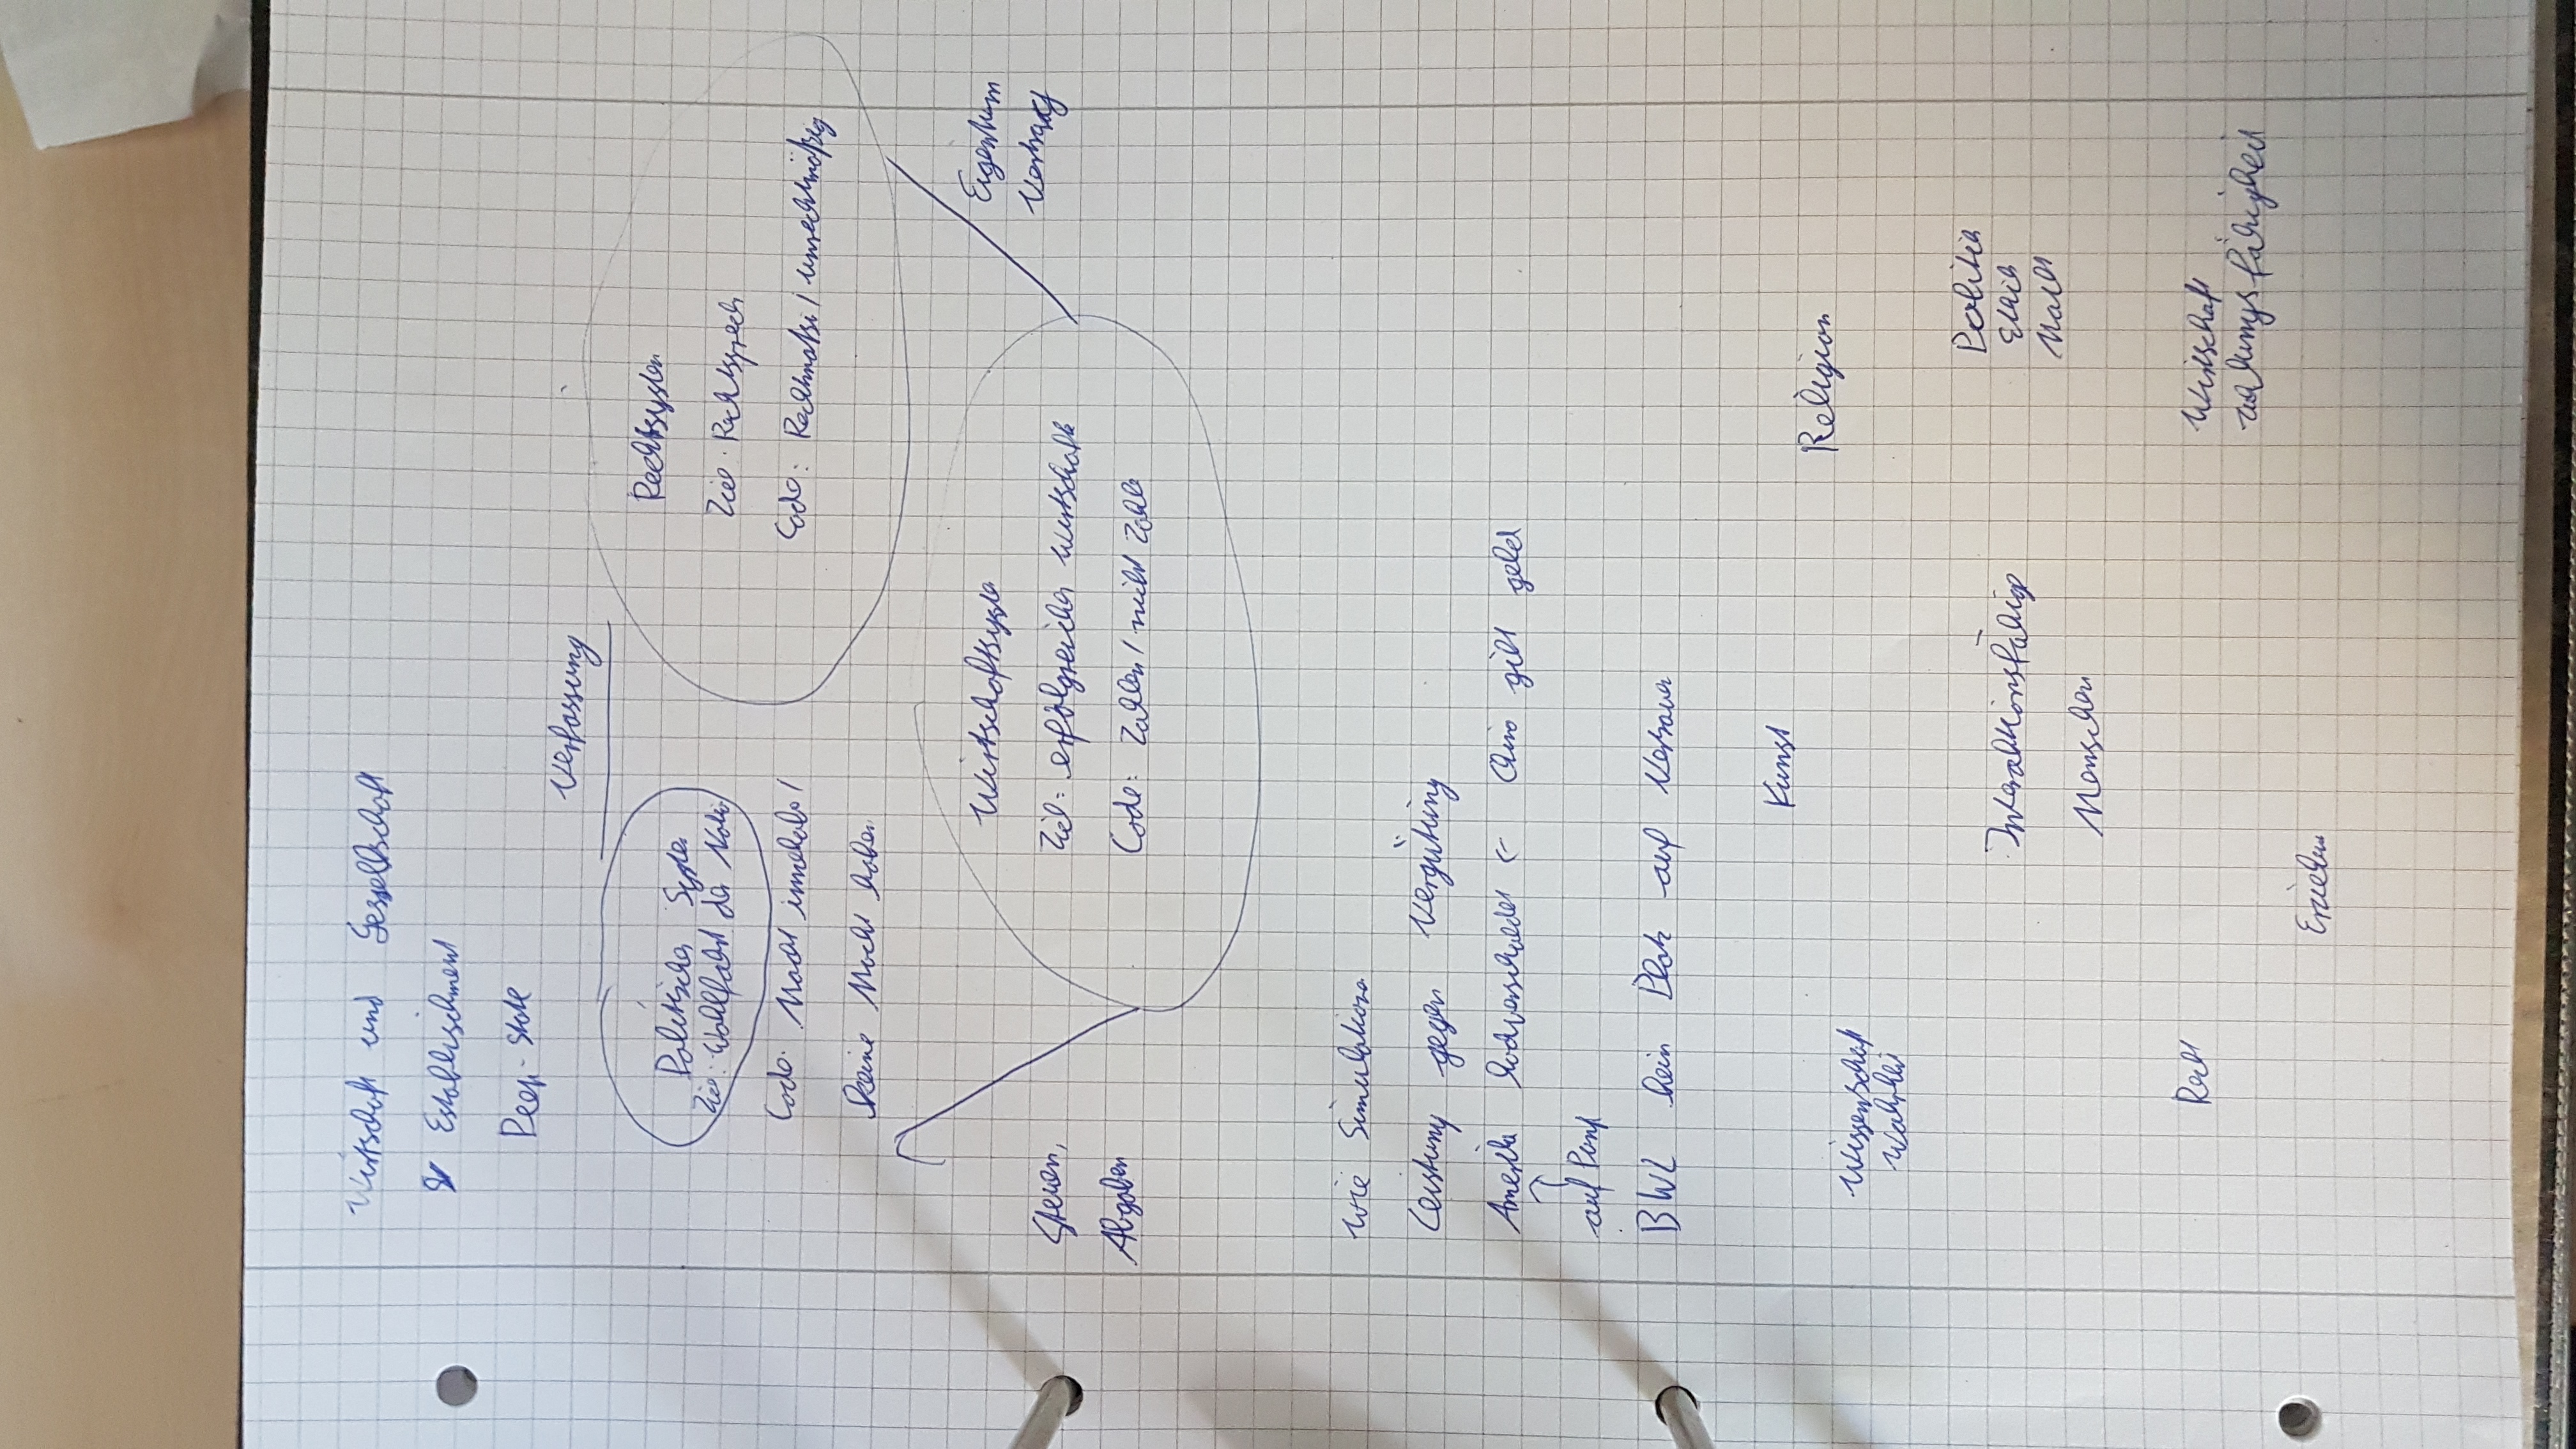 Wirtschaft und Gesellschaft
Establischment
Deep-State
Verfassung
Politisches System
Ziel: Wohlfahrt der Nation
Code: Macht innehaben /
keine Macht haben
Rechtsystem
Ziel: Rechtsprech
Code: Rechtmäßi / unrechtmäßig
Wirtschaftsystem
Ziel: erfolgreiches wirtschaften
Code: Zahlen / nicht Zahlen
Steuern,
Abgaben
Eigentum
Vertrag
Wie Simulation
Leistung gegen Vergütung
Amerika hochverschuldet ← China gibt geld
auf Pump
BWL kein Platz auf Vertrauen
Kunst
Religion
Wissenschaft
Wahrheit
Politik
Macht
Interaktionsfähige
Menschen
Recht
Wirtschaft
Zahlungsfähigkeit
Erziehung